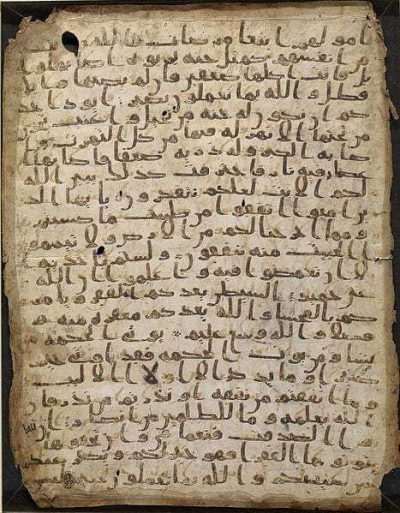 امولهم ابتغا مرضات الله وتثبيتا
من انفسهم كمثل جنه بربوه اصابها وا
بل فاتت اكلها ضعفين فان لم يصبها وابل
فطل والله بما تعملون بصير ايود احد
كم ان تكون له جنه من نخيل واعنب تجري
من تحتها الانهر له فيها من كل الثمرت وا
صابه الكبر وله ذريه ضعفا فاصابها ا
عصار فيه نار فاحترقت كذلك يبين الله
لكم الايت لعلكم تتفكرون يايها الذ
ين امنوا انفقوا من طيبت ما كسبتم
ومما اخرجنا لكم من الارض ولا تيممو
ا الخبيث منه تنفقون ولستم باخذيه
الا ان تغمضوا فيه واعلموا ان الله
غني حميد الشيطن يعدكم الفقر ويامر
كم بالفحشا والله يعدكم مغفره منه و
فضلا والله وسع عليم يوتي الحكمه من
يشا ومن يوت الحكمه فقد اوتي خيرا
كثيرا وما يذكر الا اولوا الالبب
وما انفقتم من نفقه او نذرتم من نذر فان
الله يعلمه وما للظلمين من انصار ان تبد
وا الصدقت فنعما هي وان تخفوها و
توتوها الفقرا فهو خير لكم ويكفر عنكم
من سيتكم والله بما تعملون خبير